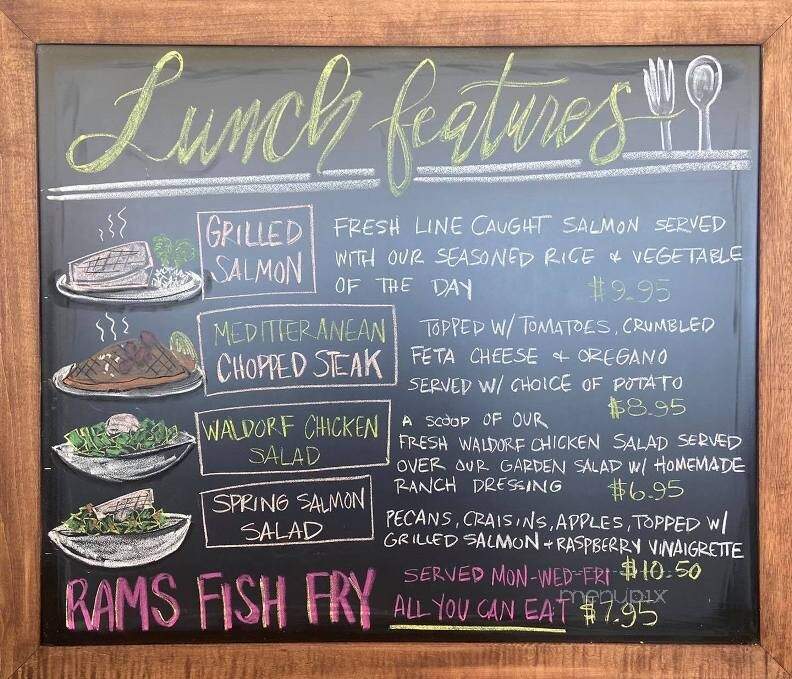 Lunch features
GRILLED
SALMON
FRESH LINE CAUGHT SALMON SERVED
WITH OUR SEASONED RICE & VEGETABLE
OF THE DAY $9.95
MEDITTERANEAN
CHOPPED STEAK
TOPPED W/ TOMATOES, CRUMBLED
FETA CHEESE & OREGANO
SERVED W/ CHOICE OF POTATO
$8.95
WALDORF CHICKEN
SALAD
A SCOOP OF OUR
FRESH WALDORF CHICKEN SALAD SERVED
OVER OUR GARDEN SALAD W/ HOMEMADE
RANCH DRESSING $6.95
SPRING SALMON
SALAD
PECANS, CRAISINS, APPLES, TOPPED W/
GRILLED SALMON + RASPBERRY VINAIGRETTE
$10.50
RAMS FISH FRY
SERVED MON-WED-FRI
ALL YOU CAN EAT $7.95
menupix